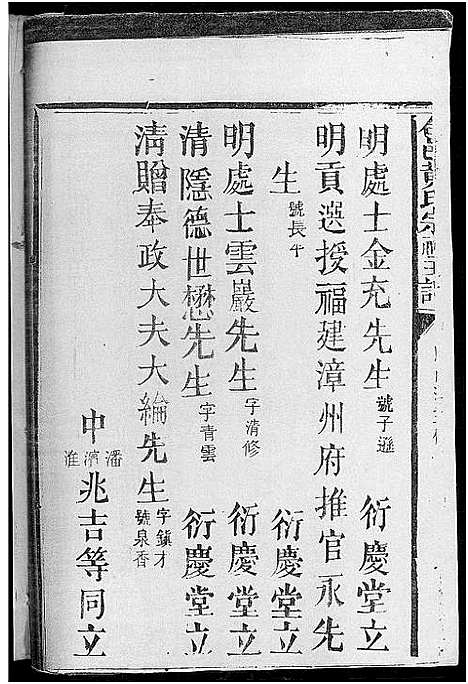 明處士金充先生號子遜 衍慶堂立
明貢選授福建漳州府推官永先
生號長平 衍慶堂立
明處士雲巖先生字清修 衍慶堂立
清隱德世懋先生字青雲 衍慶堂立
清贈奉政大夫大綸先生字鎮才號泉香
中潘濱淮兆吉等同立